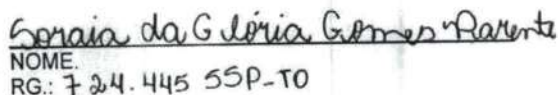 Soraia da Glória Gomes Parente
NOME.
RG.: 724.445 SSP-TO